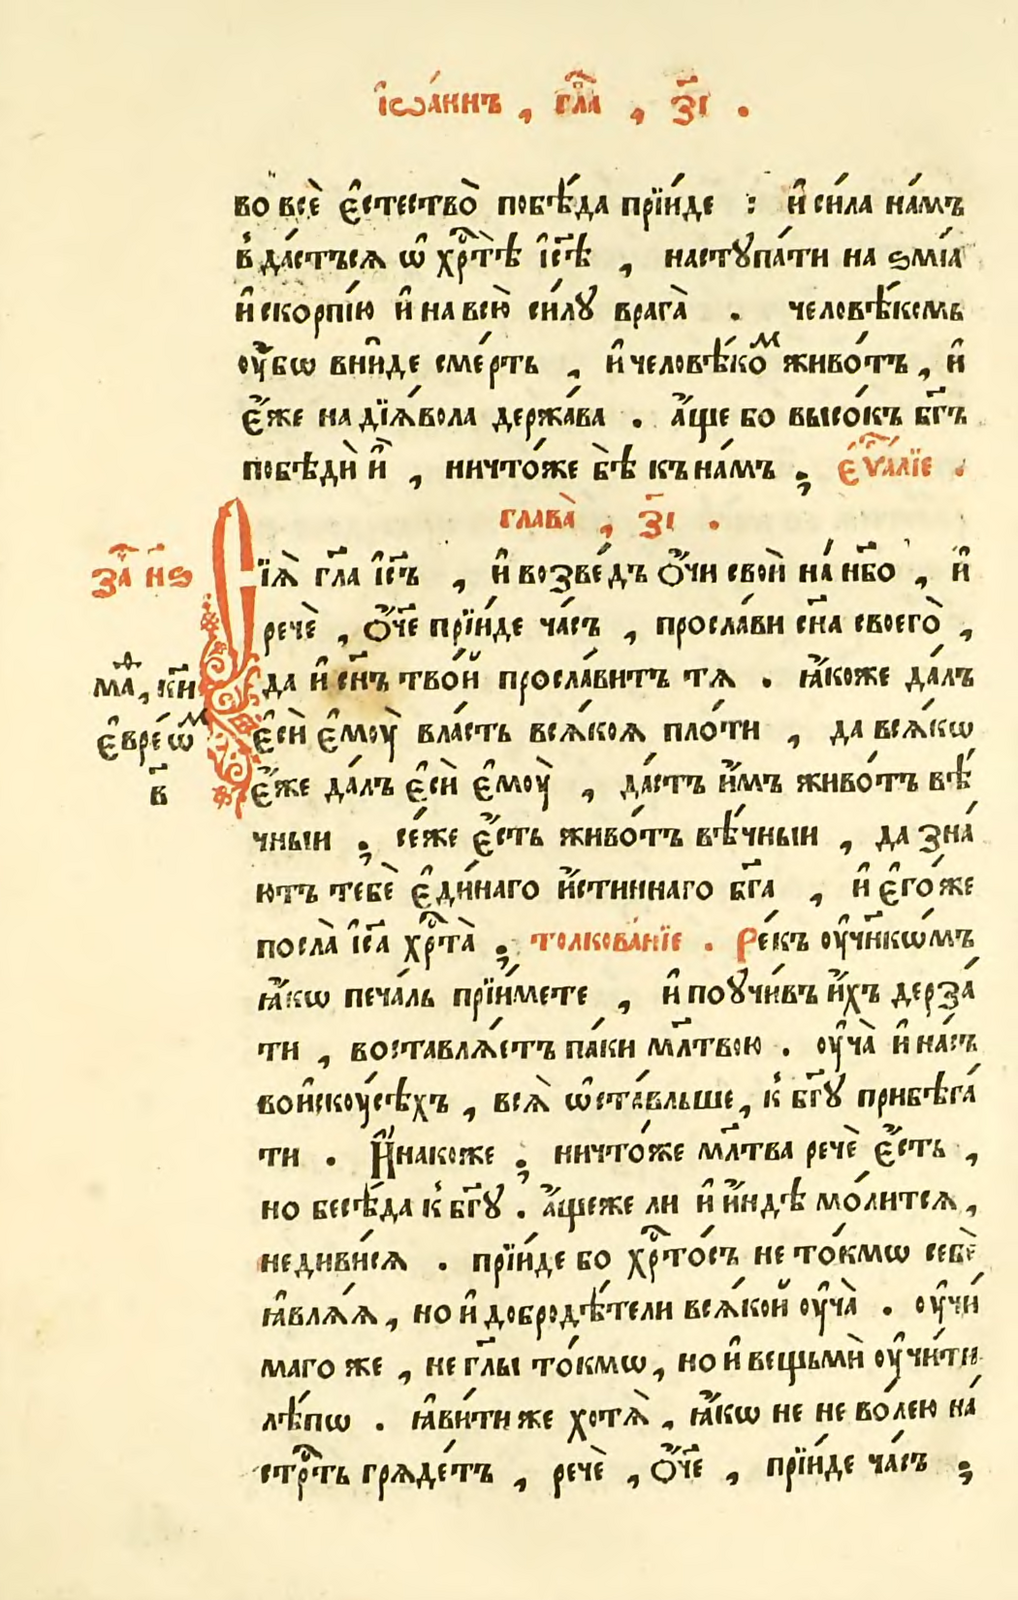 і҆ѡа́ннъ , гл҃а , з҃і .
во всѐ є҆стество̀ побѣ́да прїи́де : и҆ си́ла на́мъ
в̾да́стъсѧ ѡ҆ хрⷭ҇тѣ і҆с҃ѣ , настꙋпа́ти на ѕмі́а
и҆ скорпі́ю и҆ на всю̀ си́лꙋ врага̀ . человѣ́комь
оу҆́бѡ вни́де сме́рть , и҆ человѣ́коⷨ живо́тъ , и҆
є҆́же на дїѧ́вола держа́ва . а҆́ще бо высо́къ бг҃ъ
побѣдѝ и҆̀ , ничто́же бѣ̀ къ на́мъ ; є҆ѵⷢ҇а́лїе .
глава̀ , з҃і .
за҄ нѕ
Сїѧ̀ гл҃а і҆с҃ъ , и҆ возве́дъ ѻ҆́чи своѝ на́ нб҃о , и҆
речѐ , ѻ҆́ч҃е прїи́де ча́съ , просла́ви сн҃а своего̀ ,
маⷴ , кн҃и
да и҆ сн҃ъ тво́й просла́витъ тѧ . ꙗ҆́коже да́лъ
є҆вре́ѡⷨ
є҆сѝ є҆моу̀ вла́сть всѧ́коѧ пло́ти , да всѧ́кѡ
в҃
є҆́же да́лъ є҆сѝ є҆моу̀ , да́стъ и҆́мъ живо́тъ вѣ́
чныи ; се́же є҆́сть живо́тъ вѣ́чныи , да зна́
ютъ тебѐ є҆ди́наго и҆́стиннаго бг҃а , и҆ є҆го́же
посла̀ і҆с҃а хрⷭ҇та̀ ; толкова́нїе . Ре́къ оу҆ч҃нкѡ́мъ
ꙗ҆́кѡ печа́ль прїи́мете , и҆ поꙋчи́въ и҆́хъ дерза́
ти , воставлѧ́етъ па́ки мл҃твою . оу҆ча̀ и҆ на́съ
во и҆скоу́сѣхъ , всѧ̀ ѡ҆ста́вльше , к̾ бг҃ꙋ прибѣга́
ти . И҆́накоже ; ничто́же мл҃тва речѐ є҆́сть ,
но бесѣ́да к̾ бг҃ꙋ . а҆́щеже ли и҆ и҆́ндѣ мо́литсѧ ,
не диви́сѧ . прїи́де бо хрⷭ҇то́съ не то́кмѡ себѐ
ꙗ҆влѧ́ѧ , но и҆ добродѣ́тели всѧ́кой оу҆ча̀ . оу҆чи́
маго же , не гл҃ы то́кмѡ , но и҆ вещьмѝ оу҆чи́ти
лѣ́пѡ . ꙗ҆ви́ти же хотѧ̀ , ꙗ҆́кѡ не не во́лею на́
стрⷭ҇ть грѧде́тъ , речѐ , ѻ҆́ч҃е , прїи́де ча́съ ;